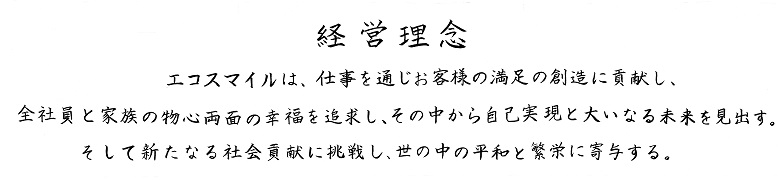 経営理念
エコスマイルは、仕事を通じお客様の満足の創造に貢献し、
全社員と家族の物心両面の幸福を追求し、その中から自己実現と大いなる未来を見出す。
そして新たなる社会貢献に挑戦し、世の中の平和と繁栄に寄与する。